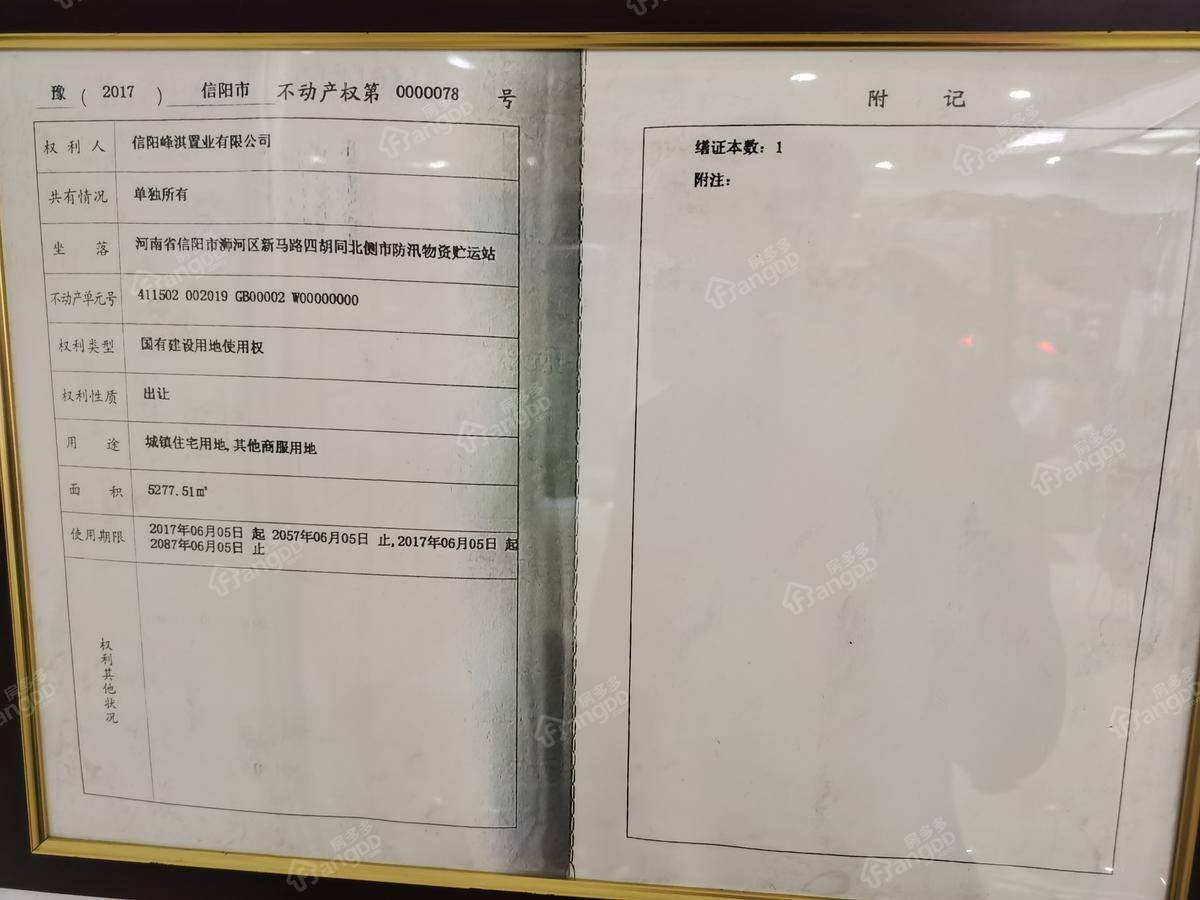 豫 ( 2017 ) 信阳市 不动产权第 0000078 号
权利人 信阳峰淇置业有限公司
共有情况 单独所有
坐落 河南省信阳市浉河区新马路四胡同北侧市防汛物资贮运站
不动产单元号 411502 002019 GB00002 W00000000
权利类型 国有建设用地使用权
权利性质 出让
用途 城镇住宅用地,其他商服用地
面积 5277.51㎡
使用期限 2017年06月05日 起 2057年06月05日 止,2017年06月05日 起
2087年06月05日 止
权利其他状况
附 记
缮证本数: 1
附注:
房多多
angDD